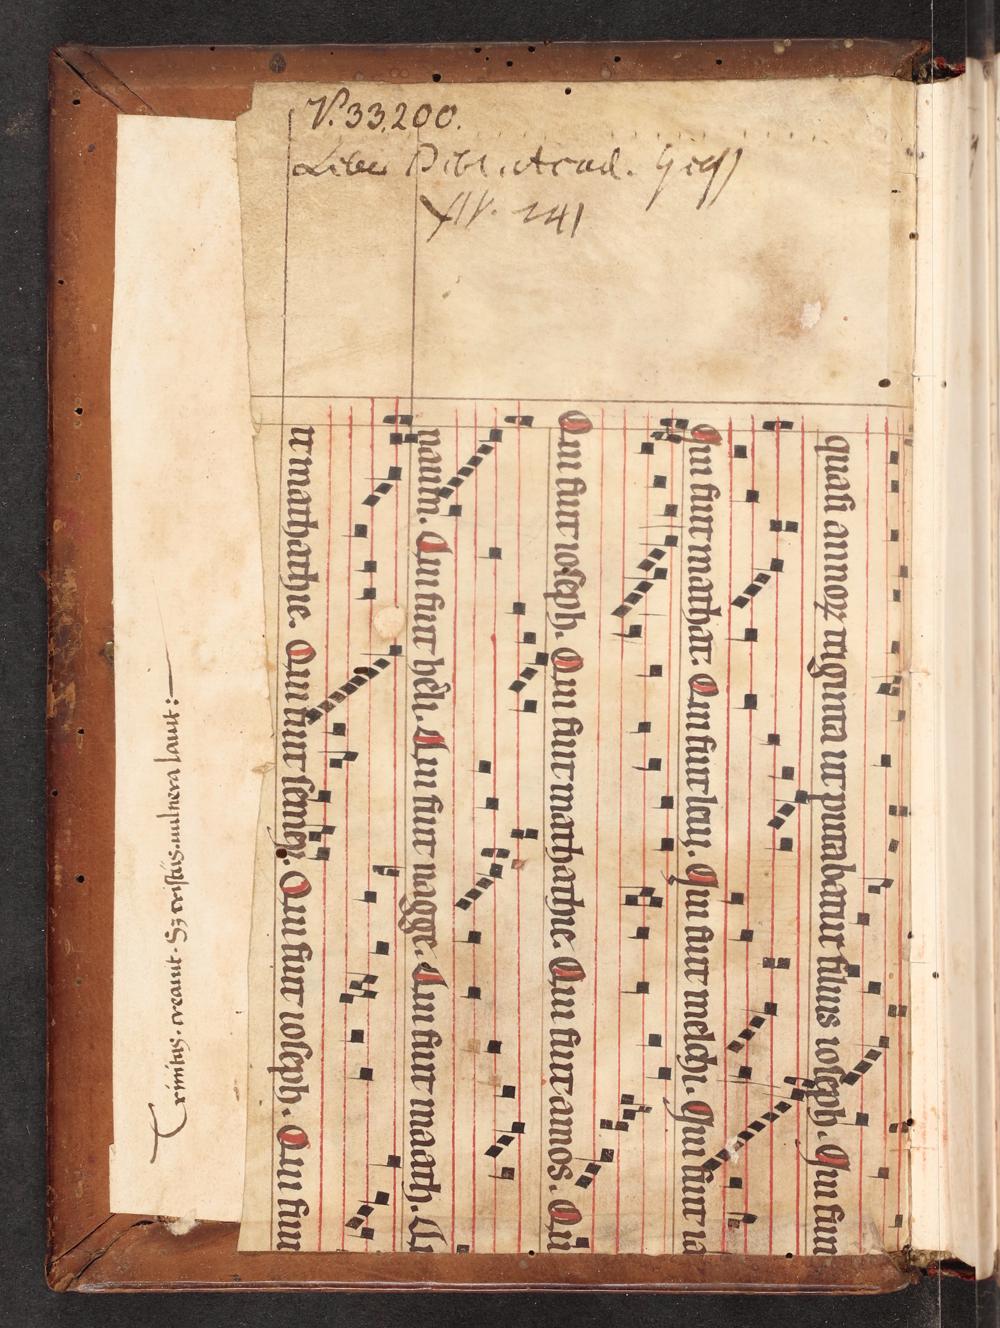 V. 33,200.
Liber Bibl. Acad. Giess
XIV. 241
quasi annoꝝ triginta ut putabatur filius ioseph. Qui fuit
Qui fuit mathat. Qui fuit leui. Qui fuit melchi. Qui fuit ia
Qui fuit ioseph. Qui fuit mathathie. Qui fuit amos. Qui
naum. Qui fuit hesli. Qui fuit nagge. Qui fuit maath. Qu
it mathathie. Qui fuit semey. Qui fuit ioseph. Qui fuit
Trinitas. creauit. Sꝫ tristis. uulnera lauit: